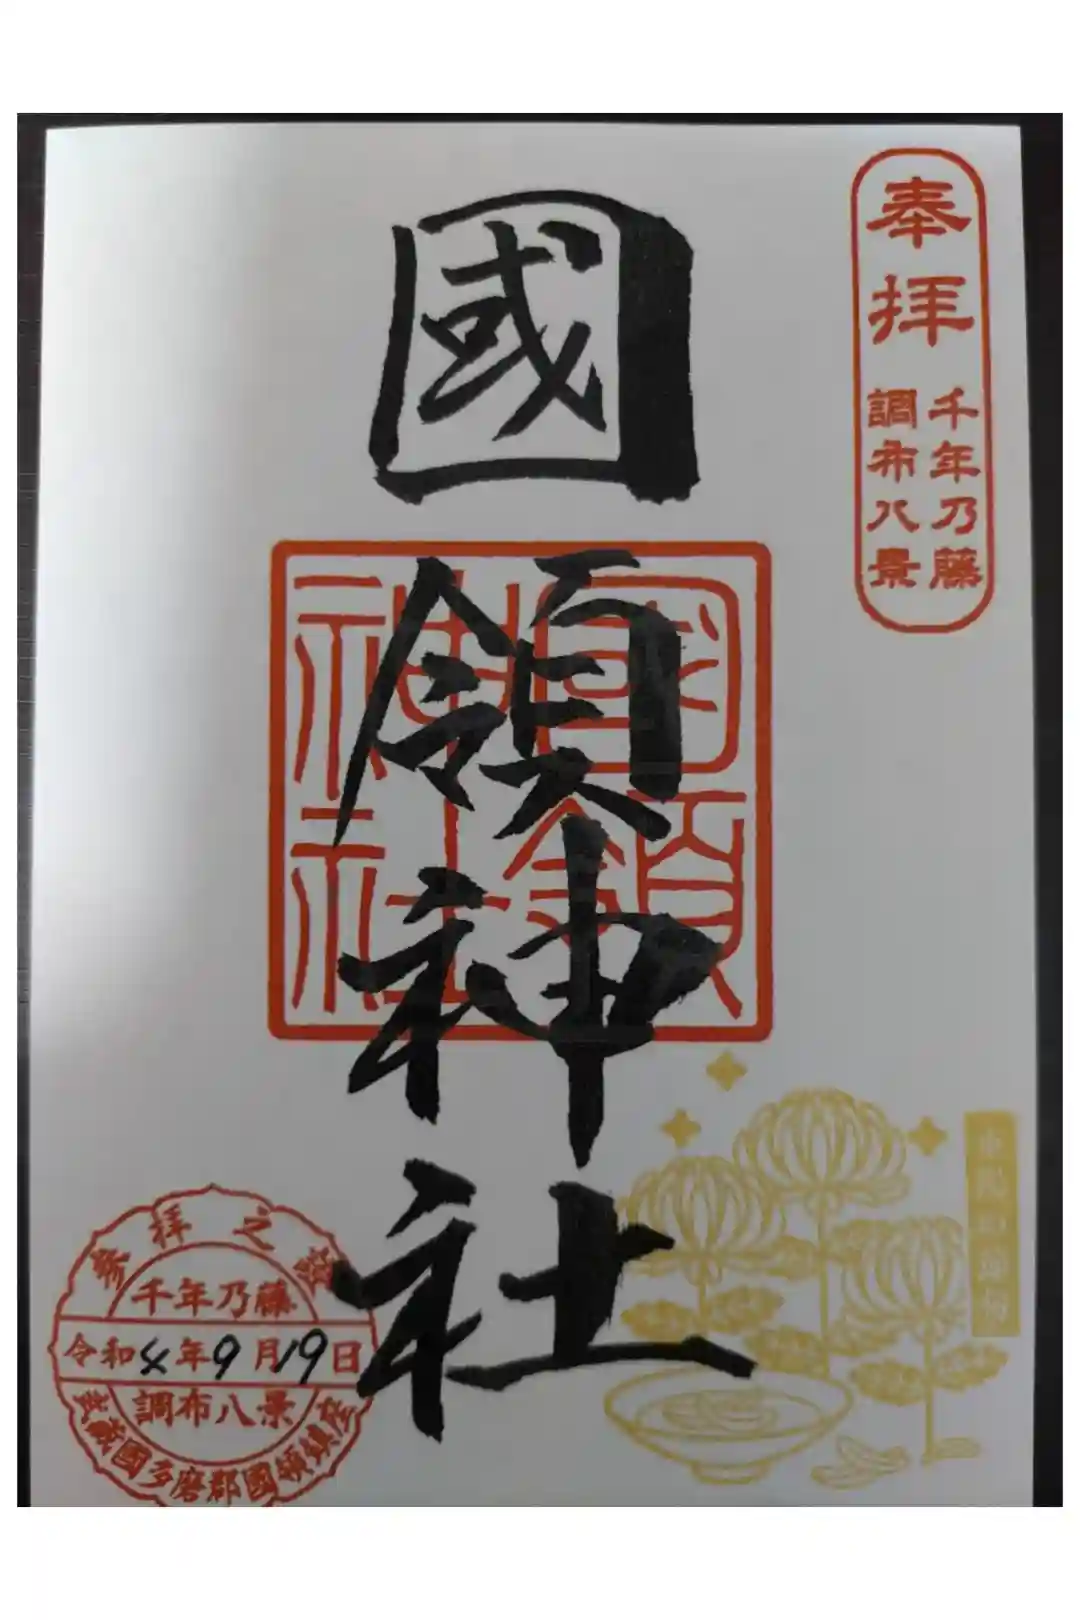 奉拝
千年乃藤
調布八景
國領神社
國領
神社
参拝之證
千年乃藤
令和4年9月19日
調布八景
武蔵國多磨郡國領鎮座